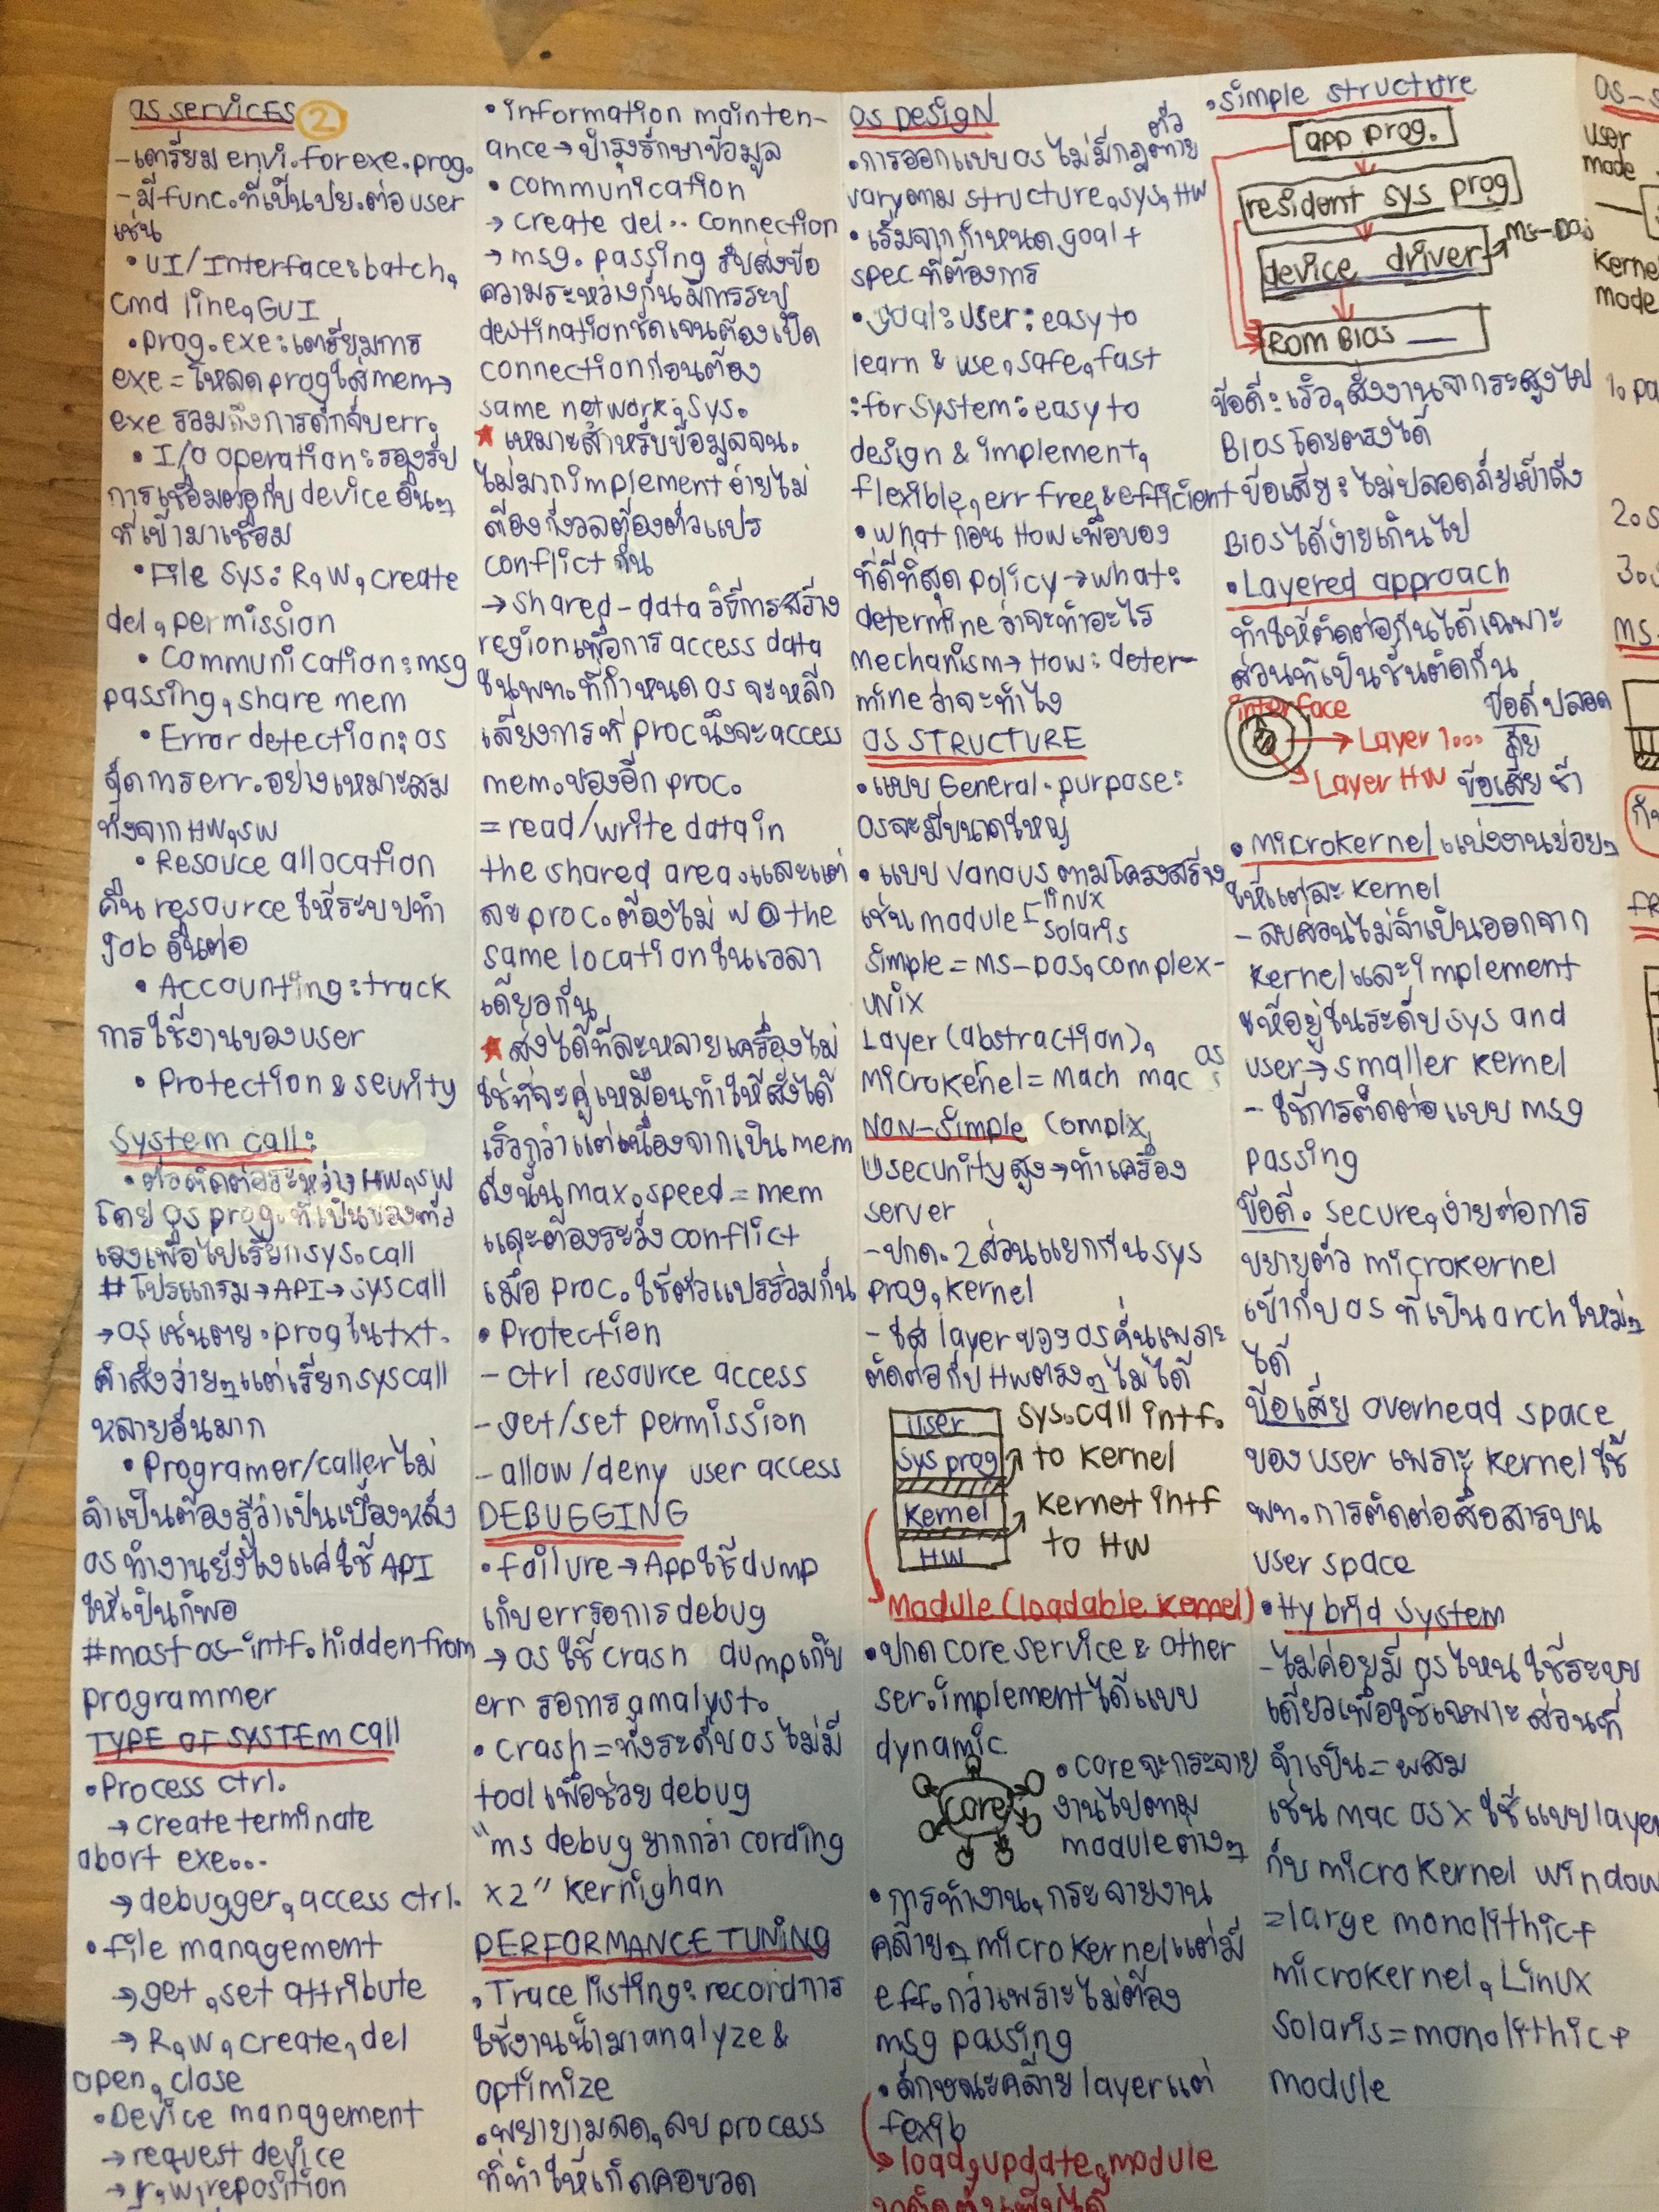 OS SERVICES ②
-เตรียม envi. for exe. prog.
-มี func. ที่เป็นปย. ต่อ user
เช่น
• UI/Interface: batch,
cmd line, GUI
• prog. exe: เตรียมการ
exe = โหลด prog ใส่ mem→
exe รวมถึงการดักจับ err.
• I/O operation: รองรับ
การเชื่อมต่อกับ device อื่นๆ
ที่เข้ามาเชื่อม
• File sys: R, W, create
del, permission
• Communication: msg
passing, share mem
• Error detection: OS
จัดการ err. อย่างเหมาะสม
ทั้งจาก HW, SW
• Resouce allocation
คืน resource ให้ระบบทำ
job อื่นต่อ
• Accounting: track
การใช้งานของ user
• Protection & seurity
System call:
• ตัวติดต่อระหว่าง HW, SW
โดย OS prog. ที่เป็นของตัว
เองเพื่อไปเรียก sys. call
# โปรแกรม→API→sys call
→OS เช่น ตย. prog ใน txt.
คำสั่งง่ายๆ แต่เรียก sys call
หลายอันมาก
• Programer/caller ไม่
จำเป็นต้องรู้ว่าเป็นเบื้องหลัง
OS ทำงานยังไงแค่ใช้ API
ให้เป็นก็พอ
#most os-intf. hidden from
programmer
TYPE OF SYSTEM Call
• Process ctrl.
→ create terminate
abort exe...
→ debugger, access ctrl.
• File management
→ get, set attribute
→ R, W, create, del
open, close
• Device management
→ request device
→ r, w, reposition
• information mainten-
ance → บำรุงรักษาข้อมูล
• communication
→ create del.. connection
→ msg. passing รับส่งข้อ
ความระหว่างกันมีการระบุ
destination ชัดเจนต้องเปิด
connection ก่อนต้อง
same network, sys.
★ เหมาะสำหรับข้อมูลจน.
ไม่มาก implement ง่ายไม่
ต้องกังวลต้องตัวแปร
conflict กัน
→ shared-data วิธีการสร้าง
region เพื่อการ access data
ในพท. ที่กำหนด OS จะหลีก
เลี่ยงการที่ proc นึงจะ access
mem. ของอีก proc.
= read/write data in
the shared area. และแต่
ละ proc. ต้องไม่ w @ the
same location ในเวลา
เดียวกัน
★ ส่งได้ทีละหลายเครื่องไม่
ใช่ทีละคู่เหมือนทำให้ส่งได้
เร็วกว่าแต่เนื่องจากเป็น mem
ดังนั้น max. speed = mem
และต้องระวัง conflict
เมื่อ proc. ใช้ตัวแปรร่วมกัน
• Protection
- ctrl resource access
- get/set permission
- allow/deny user access
DEBUGGING
• failure → App ใช้ dump
เก็บ err รอการ debug
→ OS ใช้ crash dump เก็บ
err รอการ analyst.
• crash = ทั้งระดับ OS ไม่มี
tool เพื่อช่วย debug
"การ debug ยากกว่า cording
x2" Kernighan
PERFORMANCE TUNING
• Trace listing: record การ
ใช้งานน้ำมา analyze &
optimize
• พยายามลด, ลบ process
ที่ทำให้เกิดคอขวด
OS DESIGN
• การออกแบบ OS ไม่มีกฎตายตัว
vary ตาม structure, sys, HW
• เริ่มจากกำหนด goal +
spec ที่ต้องการ
• goal: user: easy to
learn & use, safe, fast
: for system: easy to
design & implement,
flexible, err free & efficient
• What ก่อน How เพื่อของ
ที่ดีที่สุด policy → what:
determine ว่าจะทำอะไร
mechanism → How: deter-
mine ว่าจะทำไง
OS STRUCTURE
• แบบ General-purpose:
OS จะมีขนาดใหญ่
• แบบ various ตามโครงสร้าง
เช่น module - linux
solaris
simple = MS-DOS, complex-
UNIX
Layer (abstraction),
microkernel = Mach mac OS
NON-simple complx,
security สูง → ทำเครื่อง
server
-ปกต. 2 ส่วนแยกกัน sys
prog, kernel
- ใส่ layer ของ OS คั่นเพราะ
ติดต่อกับ HW ตรงๆ ไม่ได้
user
sys prog
kernel
HW
sys. call intf.
to kernel
kernet intf
to HW
Module (loadable kernel)
• ปกต core service & other
ser. implement ได้แบบ
dynamic
core
• core จะกระจาย
งานไปตาม
module ต่างๆ
• การทำงาน, กระจายงาน
คล้ายๆ microkernel แต่มี
eff. กว่าเพราะไม่ต้อง
msg passing
• ลักษณะคล้าย layer แต่
fexib
→ load, update, module
• simple structure
app prog.
resident sys prog
device driver
MS-DOS
ROM BIOS
ข้อดี: เร็ว, สั่งงานจากระสูงไป
BIOS โดยตรงได้
ข้อเสีย: ไม่ปลอดภัยเข้าถึง
BIOS ได้ง่ายเกินไป
• Layered approach
ทำให้ติดต่อกันได้เฉพาะ
ส่วนที่เป็นชั้นติดกัน
interface
Layer 1...
Layer HW
ข้อดี ปลอด
ภัย
ข้อเสีย ช้า
• Microkernel แบ่งงานย่อยๆ
ให้แต่ละ kernel
- ลบส่วนไม่จำเป็นออกจาก
kernel และ implement
ให้อยู่ในระดับ sys and
user → smaller kernel
- ใช้การติดต่อแบบ msg
passing
ข้อดี. secure, ง่ายต่อการ
ขยายตัว microkernel
เข้ากับ OS ที่เป็น arch ใหม่ๆ
ได้
ข้อเสีย overhead space
ของ user เพราะ kernel ใช้
พท. การติดต่อสื่อสารบน
user space
• Hybrid system
- ไม่ค่อยมี OS ไหนใช้ระบบ
เดียวเพื่อใช้เฉพาะส่วนที่
จำเป็น = ผสม
เช่น Mac OS X ใช้แบบ layer
กับ microkernel window
= large monolithic +
microkernel, Linux
solaris = monolithic +
module
user
mode
kerne
mode